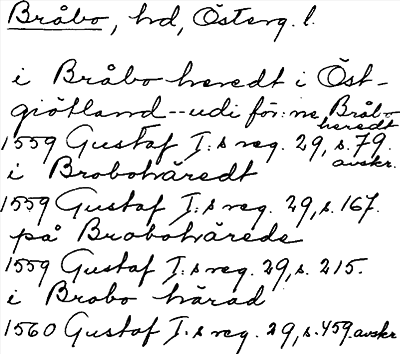 Bråbo, hd, Österg. l.
i Bråbo heredt i Öst-
giötland--udi för:ne Bråbo
heredt
1559 Gustaf I:s reg. 29, s. 79.
avskr.
i Brobohäredt
1559 Gustaf I:s reg. 29, s. 167.
på Brobohärede
1559 Gustaf I:s reg. 29, s. 215.
i Brobo härad
1560 Gustaf I:s reg. 29, s. 459. avskr